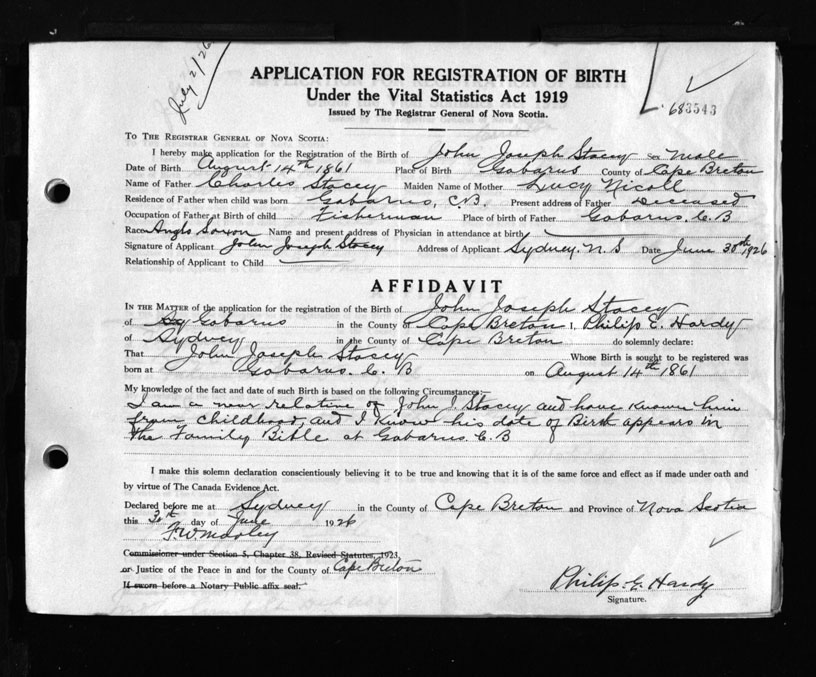 July 2/26
APPLICATION FOR REGISTRATION OF BIRTH
Under the Vital Statistics Act 1919
Issued by The Registrar General of Nova Scotia.
683543
TO THE REGISTRAR GENERAL OF NOVA SCOTIA:
I hereby make application for the Registration of the Birth of John Joseph Stacey Sex Male
Date of Birth August 14th 1861 Place of Birth Gabarus County of Cape Breton
Name of Father Charles Stacey Maiden Name of Mother Lucy Nicoll
Residence of Father when child was born Gabarus, C.B. Present address of Father Deceased
Occupation of Father at Birth of child Fisherman Place of birth of Father Gabarus. C.B
Race Anglo Saxon Name and present address of Physician in attendance at birth
Signature of Applicant John Joseph Stacey Address of Applicant Sydney. N.S Date June 30th 1926
Relationship of Applicant to Child
AFFIDAVIT
IN THE MATTER of the application for the registration of the Birth of John Joseph Stacey
of Sy Gabarus in the County of Cape Breton I, Philip E. Hardy
of Sydney in the County of Cape Breton do solemnly declare:
That John Joseph Stacey Whose Birth is sought to be registered was
born at Gabarus. C. B on August 14th 1861
My knowledge of the fact and date of such Birth is based on the following Circumstances:—
I am a near relative of John J. Stacey and have known him
from childhood, and I know his date of Birth appears in
the Family Bible at Gabarus. C.B
I make this solemn declaration conscientiously believing it to be true and knowing that it is of the same force and effect as if made under oath and
by virtue of The Canada Evidence Act.
Declared before me at Sydney in the County of Cape Breton and Province of Nova Scotia
this 30th day of June 1926
Commissioner under Section 5, Chapter 38, Revised Statutes, 1923
or Justice of the Peace in and for the County of Cape Breton
If sworn before a Notary Public affix seal.
Philip. E. Hardy
Signature.